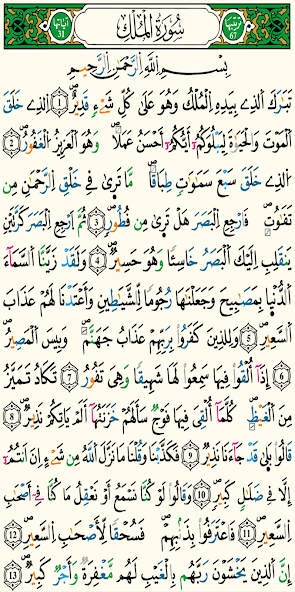 ترتيبها 67
سُورَةُ الْمُلْكِ
آياتها 31
بِسْمِ اللَّهِ الرَّحْمَٰنِ الرَّحِيمِ
تَبَٰرَكَ الَذِے بِيَدِهِ اِلْمُلْكُ وَهُوَ عَلَىٰ كُلِّ شَےْءٖ قَدِيرٌ (1) اِلذِے خَلَقَ
اَلْمَوْتَ وَالْحَيَوٰةَ لِيَبْلُوَكُمُۥٓ أَيُّكُمُۥٓ أَحْسَنُ عَمَلاٗۖ وَهُوَ اَلْعَزِيزُ اُلْغَفُورُۖ (2)
اُلذِے خَلَقَ سَبْعَ سَمَٰوَٰتٖ طِبَاقاٗۖ مَّا تَرٜىٰ فِے خَلْقِ اِلرَّحْمَٰنِ مِن
تَفَٰوُتٖۖ فَارْجِعِ اِلْبَصَرَ هَلْ تَرٜىٰ مِن فُطُورٖۖ (3) ثُمَّ اَرْجِعِ اِلْبَصَرَ كَرَّتَيْنِ
يَنقَلِبِ اِلَيْكَ اَلْبَصَرُ خَاسِئاٗ وَهُوَ حَسِيرٞۖ (4) وَلَقَدْ زَيَّنَّا اَلسَّمَآءَ
اَلدُّنْيٜا بِمَصَٰبِيحَ وَجَعَلْنَٰهَا رُجُوماٗ لِّلشَّيَٰطِينِ وَأَعْتَدْنَا لَهُمْ عَذَابَ
اَلسَّعِيرِۖ (5) وَلِلذِينَ كَفَرُواْ بِرَبِّهِمْ عَذَابُ جَهَنَّمَۖ وَبِيسَ اَلْمَصِيرُۖ
(6) إِذَآ أُلْقُواْ فِيهَا سَمِعُواْ لَهَا شَهِيقاٗ وَهِيَ تَفُورُ (7) تَكَادُ تَمَيَّزُ
مِنَ اَلْغَيْظِۖ كُلَّمَآ أُلْقِيَ فِيهَا فَوْجٞ سَأَلَهُمْ خَزَنَتُهَآ أَلَمْ يَاتِكُمْ نَذِيرٞۖ (8)
قَالُواْ بَلَىٰ قَدْ جَآءَنَا نَذِيرٞۖ (9) فَكَذَّبْنَا وَقُلْنَا مَا نَزَّلَ اَللَّهُ مِن شَےْءٍ اِنَ اَنتُمُۥٓ
إِلَّا فِے ضَلَٰلٖ كَبِيرٖۖ (10) وَقَالُواْ لَوْ كُنَّا نَسْمَعُ أَوْ نَعْقِلُ مَا كُنَّا فِےٓ أَصْحَٰبِ
اِلسَّعِيرِۖ (11) فَاعْتَرَفُواْ بِذَنۢبِهِمْۖ فَسُحْقاٗ لِّأَصْحَٰبِ اِلسَّعِيرِۖ (12)
إِنَّ اَلذِينَ يَخْشَوْنَ رَبَّهُم بِالْغَيْبِ لَهُم مَّغْفِرَةٞ وَأَجْرٞ كَبِيرٞۖ (13)